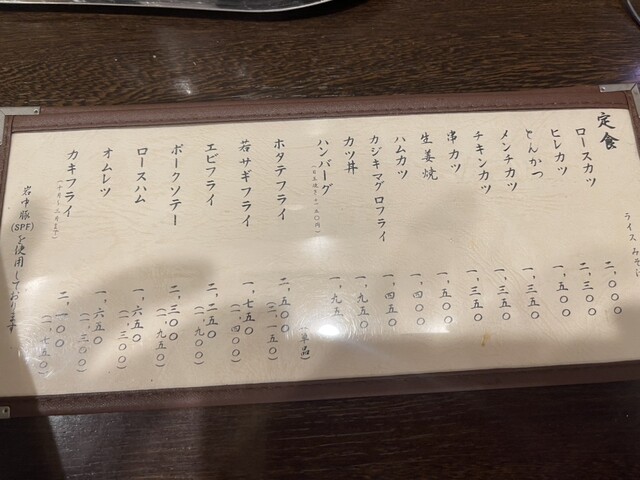 ライス みそ
定食
ロースカツ 二,〇〇〇
ヒレカツ 二,三〇〇
とんかつ 一,五〇〇
メンチカツ 一,三五〇
チキンカツ 一,三五〇
串カツ 一,三五〇
生姜焼 一,五〇〇
ハムカツ
カジキマグロフライ 一,四五〇
カツ丼 一,九五〇
ハンバーグ 一,九五
(単品)
ホタテフライ 二,五〇〇 (二,一五〇)
若サギフライ 一,七五〇 (一,四〇〇)
エビフライ 二,二五〇 (一,九〇〇)
ポークソテー 二,三〇〇 (一,九五〇)
ロースハム 一,六五〇 (一,三〇〇)
オムレツ 一,六五〇 (一,三〇〇)
カキフライ 二,一〇〇 (一,七五〇)
(十月から三月まで)
岩中豚(SPF)を使用しております